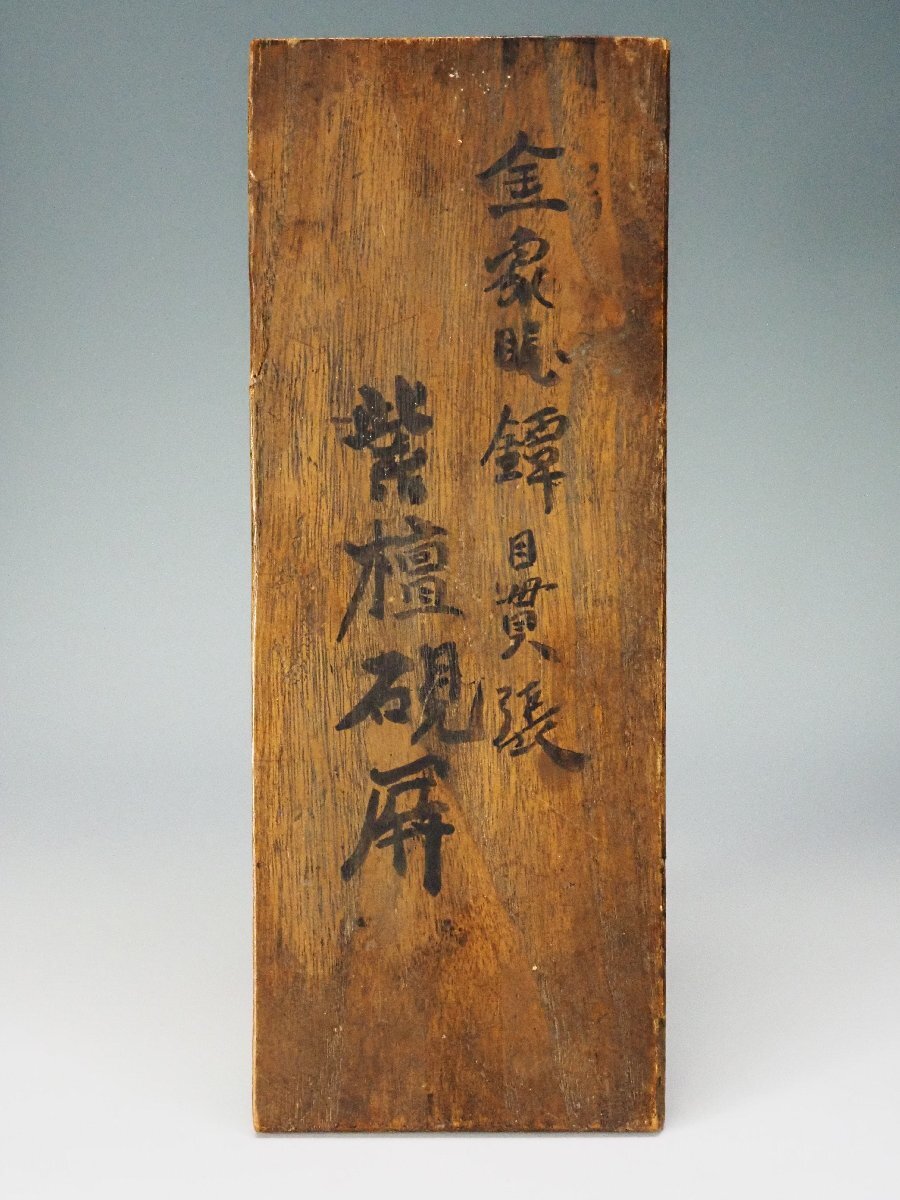 金象眼鐔目貫張
紫檀硯屏